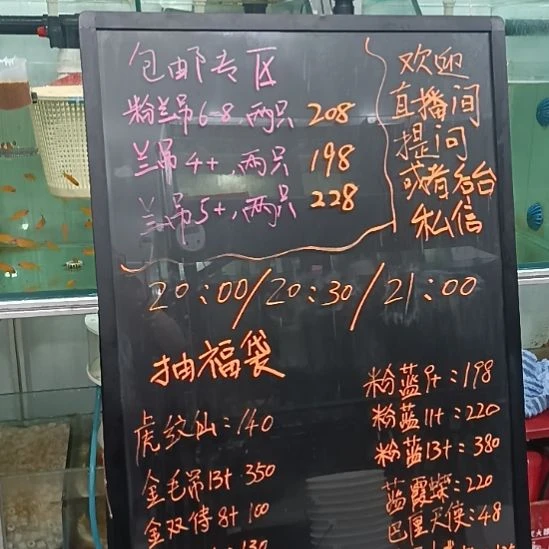 包邮专区
粉兰吊6-8,两只 208
兰吊4+,两只 198
兰吊5+,两只 228
欢迎
直播间
提问
或者后台
私信
20:00/20:30/21:00
抽福袋
虎纹仙:140
金毛吊13+ 350
金双侍8+ 100
130
粉蓝9+:198
粉蓝11+:220
粉蓝13+:380
蓝霞蝶:220
巴厘天使:48